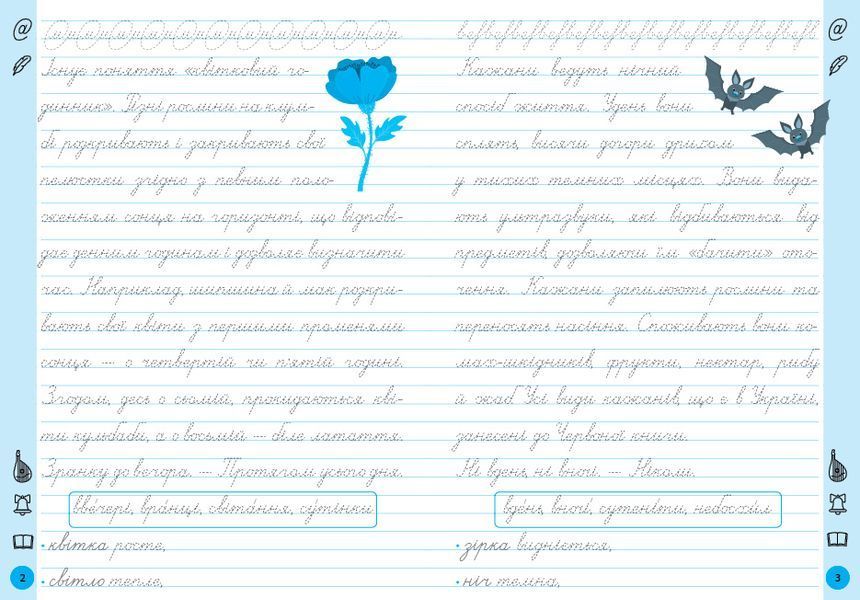 Існує поняття «квітковий го-
динник». Різні рослини на клум-
бі розкривають і закривають свої
пелюстки згідно з певним поло-
женням сонця на горизонті, що відпові-
дає денним годинам і дозволяє визначити
час. Наприклад, шипшина й мак розкри-
вають свої квіти з першими променями
сонця — о четвертій чи п'ятій годині.
Згодом, десь о сьомій, прокидаються кві-
ти кульбаби, а о восьмій — біле латаття.
Зранку до вечора. — Протягом усього дня.
вве́чері, вра́нці, світа́ння, су́тінки
• квітка росте,
• світло тепле,
2
Кажани ведуть нічний
спосіб життя. Удень вони
сплять, висячи догори дриґом
у тихих темних місцях. Вони вида-
ють ультразвуки, які відбиваються від
предметів, дозволяючи їм «бачити» ото-
чення. Кажани запилюють рослини та
переносять насіння. Споживають вони ко-
мах-шкідників, фрукти, нектар, рибу
й жаб. Усі види кажанів, що є в Україні,
занесені до Червоної книги.
Ні вдень, ні вночі. — Ніколи.
вде́нь, вночі́, сутені́ти, небосхи́л
• зірка видніється,
• ніч темна,
3